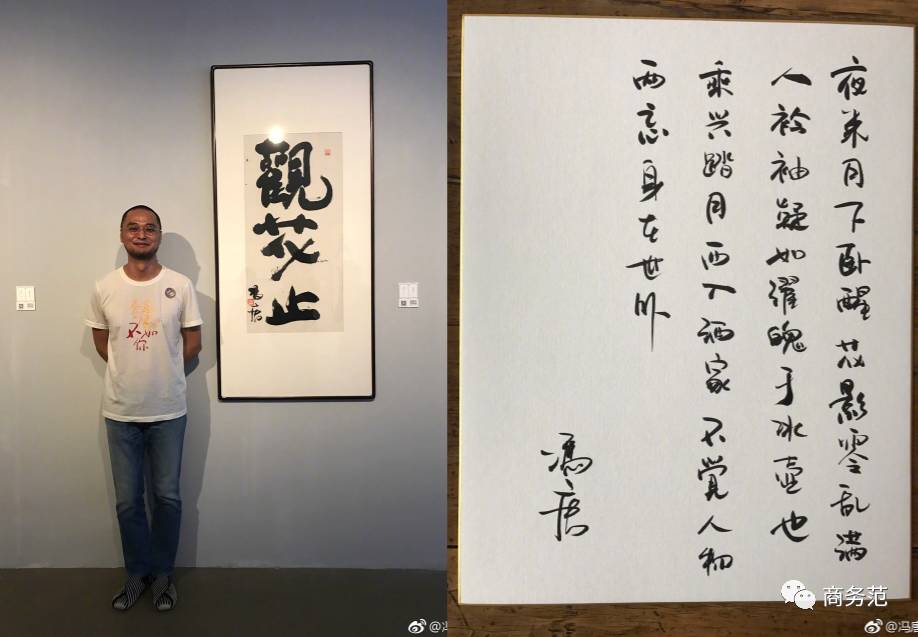 觀花止
馮唐
不如你
@冯
夜来月下卧醒花影零乱满
人衿袖疑如濯魄于冰壶也
乘兴踏月西入酒家不觉人物
两忘身在世外
馮唐
商务范
@冯唐